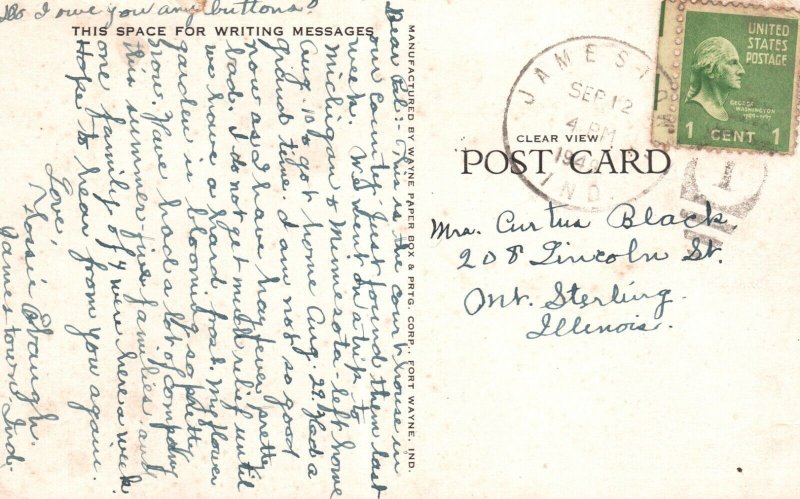 Do I owe you any buttons?
THIS SPACE FOR WRITING MESSAGES
Dear Pal:- This is the court house in
our county. Just found them last
week. We went on a trip to
Michigan & Minnesota - left home
Aug. 10 & got home Aug. 29. Had a
grand time. I am not so good
now as I have hayfever pretty
bad. I do not get much relief until
we have a hard frost. My flower
garden is blooming so pretty
now. Have had a lot of company
this summer - five families and
one family of 4 were here a week.
Hope to hear from you again.
Love,
Flossie Obaugh.
Jamestown, Ind.
MANUFACTURED BY WAYNE PAPER BOX & PRTG. CORP., FORT WAYNE, IND.
CLEAR VIEW
POST CARD
JAMESTOWN
SEP 12
4 PM
194
IND.
UNITED
STATES
POSTAGE
GEORGE
WASHINGTON
1789-1797
1 CENT 1
1
Mrs. Curtus Black
208 Lincoln St.
Mt. Sterling.
Illinois.